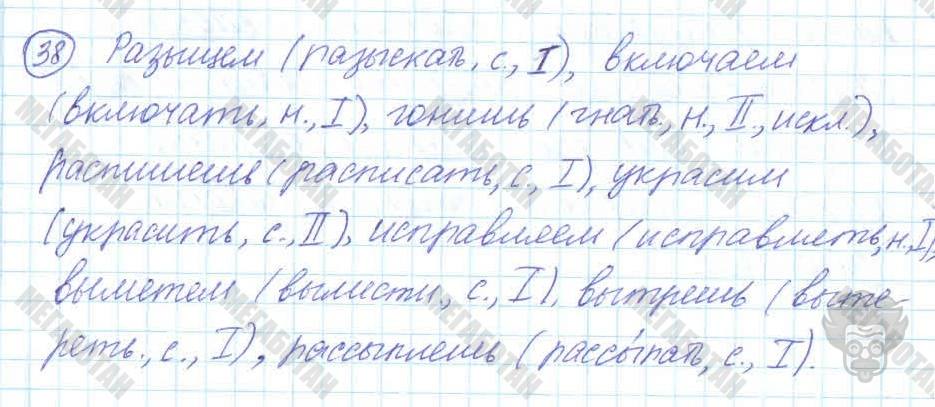 38 Разыщем (разыскать, с., I), включаем
(включать, н., I), гонишь (гнать, н., II, искл.),
распишешь (расписать, с., I), украсим
(украсить, с., II), исправляем (исправлять, н., I),
выметем (вымести, с., I), вытрешь (выте-
реть, с., I), рассыплешь (рассы́пать, с., I).
МЕГАБОТАН